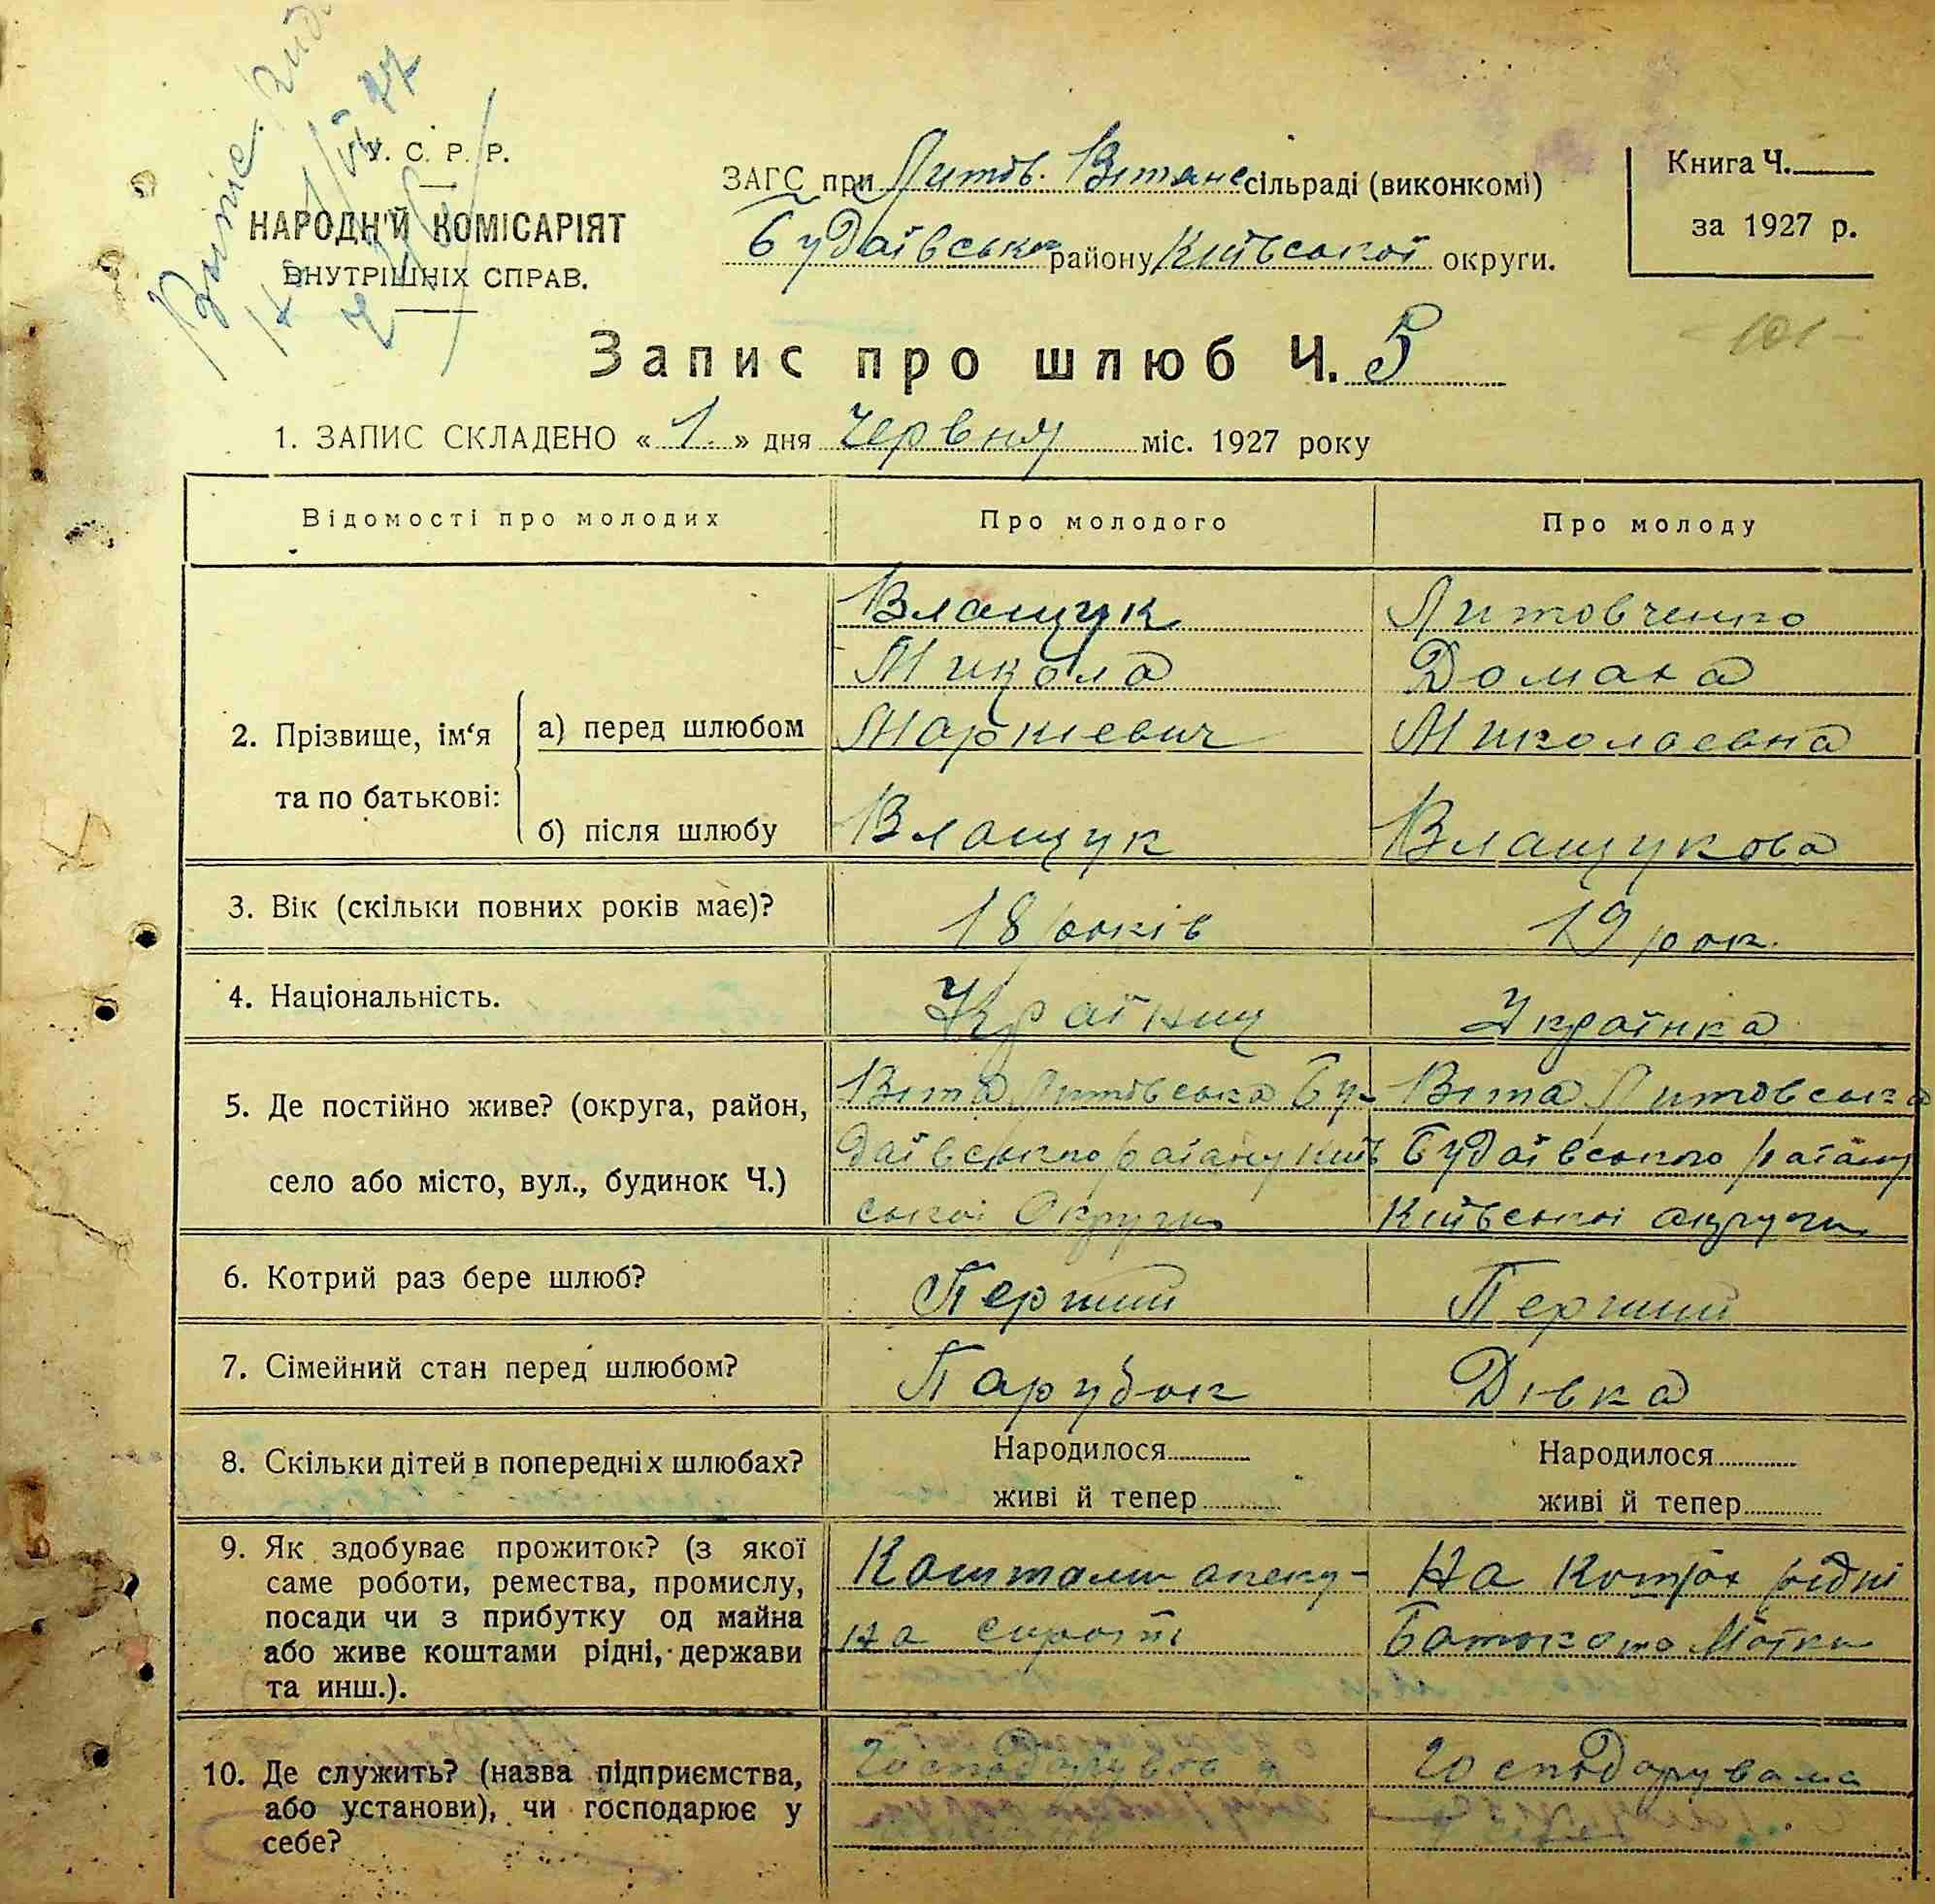 Випис
У. С. Р. Р.
НАРОДН'Й КОМІСАРІЯТ
ВНУТРІШНІХ СПРАВ.
ЗАГС при Литов. Вітянс сільраді (виконкомі)
Будаївсько району Київської округи.
Книга Ч.
за 1927 р.
101
Запис про шлюб Ч. 5
1. ЗАПИС СКЛАДЕНО « 1. » дня Червня міс. 1927 року
Відомості про молодих Про молодого Про молоду
2. Прізвище, ім‘я та по батькові:
а) перед шлюбом
Влащук Литовченко
Микола Домаха
Маркієвич Миколаєвна
б) після шлюбу Влащук Влащукова
3. Вік (скільки повних років має)? 18 років 19 рок.
4. Національність. Українц Українка
5. Де постійно живе? (округа, район, село або місто, вул., будинок Ч.)
Віта Литовська Бу- Віта Литовська
даївського раіану Київ Будаївського раіану
ськоі Округи Київськоі округи
6. Котрий раз бере шлюб? Перший Перший
7. Сімейний стан перед шлюбом? Парубок Дівка
8. Скільки дітей в попередніх шлюбах? Народилося Народилося
живі й тепер живі й тепер
9. Як здобуває прожиток? (з якої саме роботи, ремества, промислу, посади чи з прибутку од майна або живе коштами рідні, держави та инш.).
Коштами опеку- На рідні
на Батька та Матки
10. Де служить? (назва підприємства, або установи), чи господарює у себе?
Господарував Господарувала